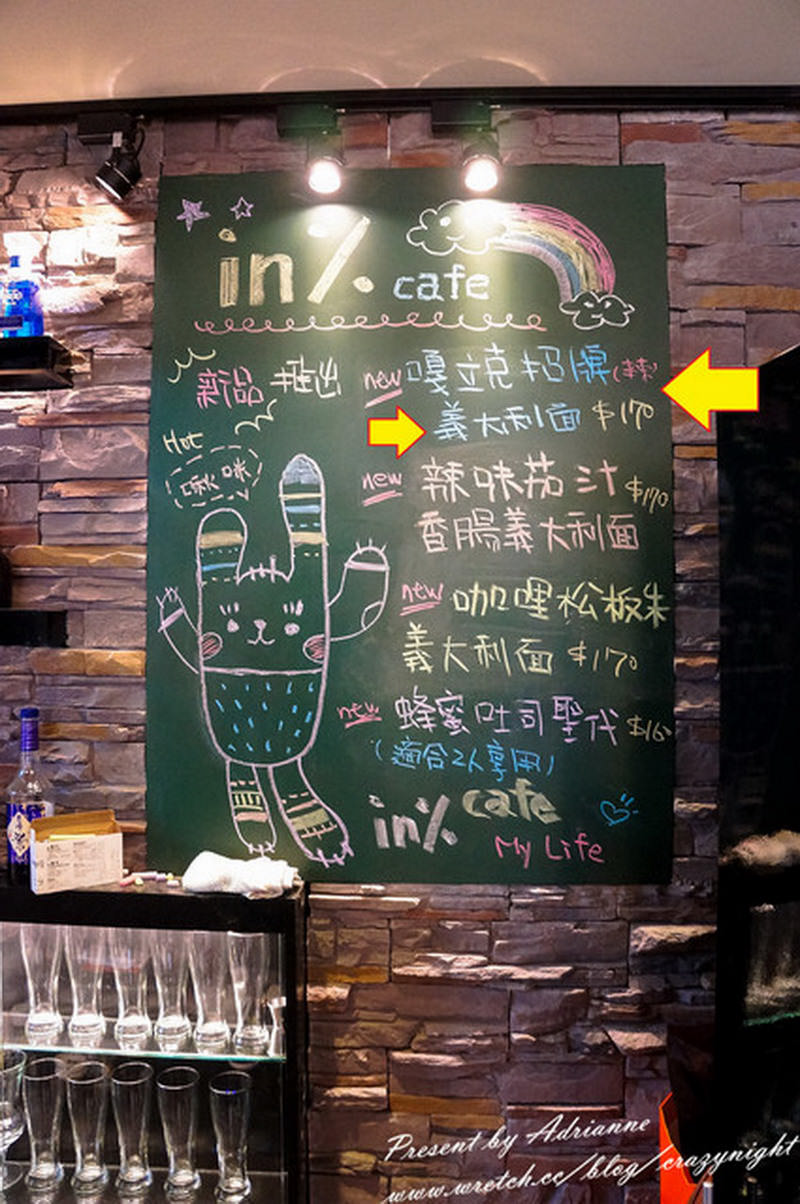 in% cafe
新品 推出
new 嘎立克招牌(辣)
義大利面 $170
Hot
new 辣味茄汁 $170
香腸義大利面
new 咖哩松板朱
義大利面 $170
new 蜂蜜吐司聖代 $160
(適合2人享用)
in% cafe
My Life
Present by Adrianne
www.wretch.cc/blog/crazynight